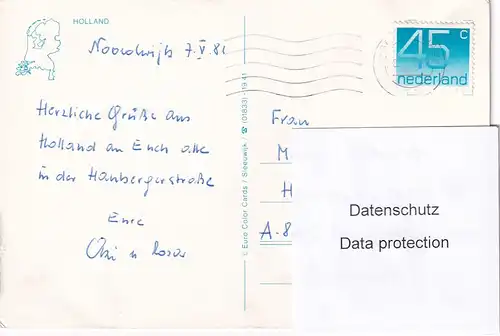 HOLLAND
Noordwijk 7.V.81
45 c
nederland
Herzliche Grüße aus
Holland an Euch alle
in der Hanbergerstraße
Eure
© Euro Color Cards / Sleeuwijk / ☎ (01833) - 19 41
Frau
M
H
A-8
Datenschutz
Data protection